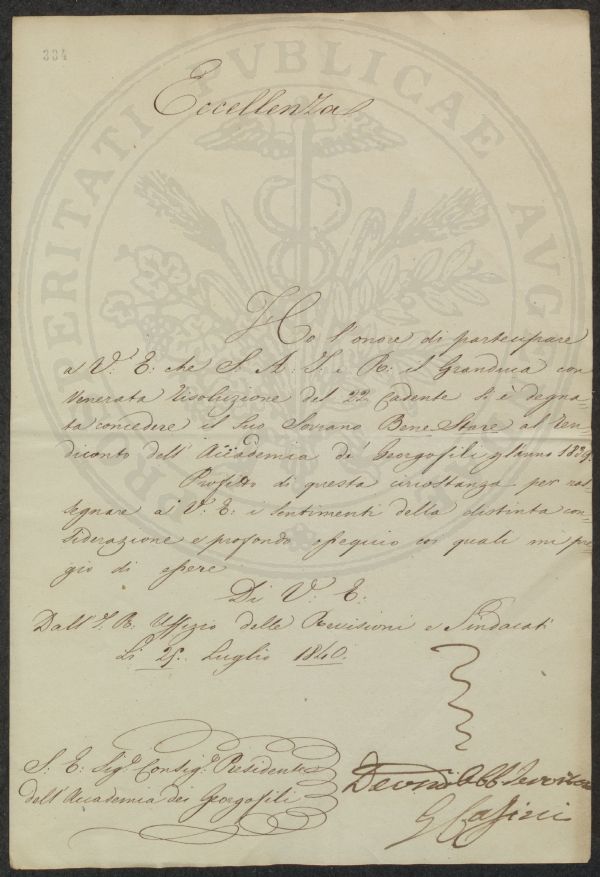 334
PROSPERITATI PVBLICAE AVGENDAE
Eccellenza
Ho l'onore di partecipare
a V. E. che S. A. I. e R. il Granduca con
Venerata Risoluzione del 22. Cadente si è degna-
ta concedere il Suo Sovrano Bene Stare al Ren
diconto dell' Accademia de' Georgofili pl'anno 1839.
Profitto di questa circostanza per ras
segnare a V. E. i sentimenti della distinta con-
siderazione e profondo ossequio coi quali mi pre
gio di essere
Di V. E.
Dall' I. R. Uffizio delle Revisioni e Sindacati
Li 25. Luglio 1840.
S. E. Sig.r Consig.r Presidente
dell'Accademia dei Georgofili
Devmo Obb Servitore
G Casini